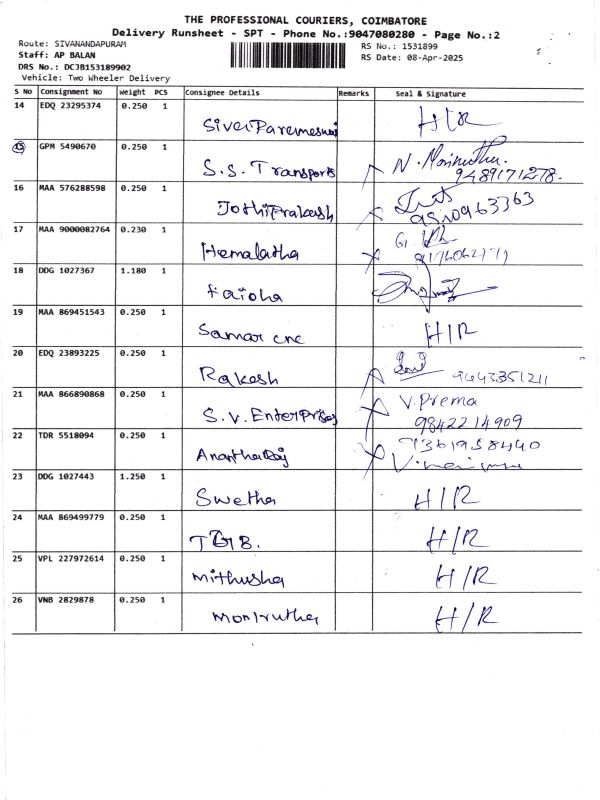 THE PROFESSIONAL COURIERS, COIMBATORE
Delivery Runsheet - SPT - Phone No.:9047080280 - Page No.:2
Route: SIVANANDAPURAM
Staff: AP BALAN
DRS No.: DCJB153189902
Vehicle: Two Wheeler Delivery
RS No.: 1531899
RS Date: 08-Apr-2025
S No Consignment No Weight PCS Consignee Details Remarks Seal & Signature
14 EDQ 23295374 0.250 1 H/R
15 GPM 5490670 0.250 1 S.S. Transports N. 9489171278.
16 MAA 576288598 0.250 1 JothiPrakash
17 MAA 9000082764 0.230 1 Hemalatha
18 DDG 1027367 1.180 1
19 MAA 869451543 0.250 1 Samar cnc H/R
20 EDQ 23893225 0.250 1 Rakesh 9443351211
21 MAA 866890868 0.250 1 S.V. EnterPrises V. Prema
9842214909
22 TDR 5518094 0.250 1 AnanthaRaj
23 DDG 1027443 1.250 1 Swetha H/R
24 MAA 869499779 0.250 1 H/R
25 VPL 227972614 0.250 1 Mithusha H/R
26 VNB 2829878 0.250 1 H/R